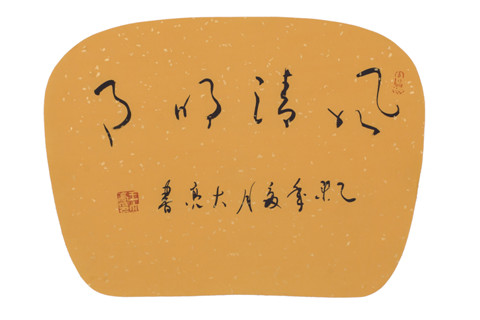 风清明月
乙未年夏月大亮書